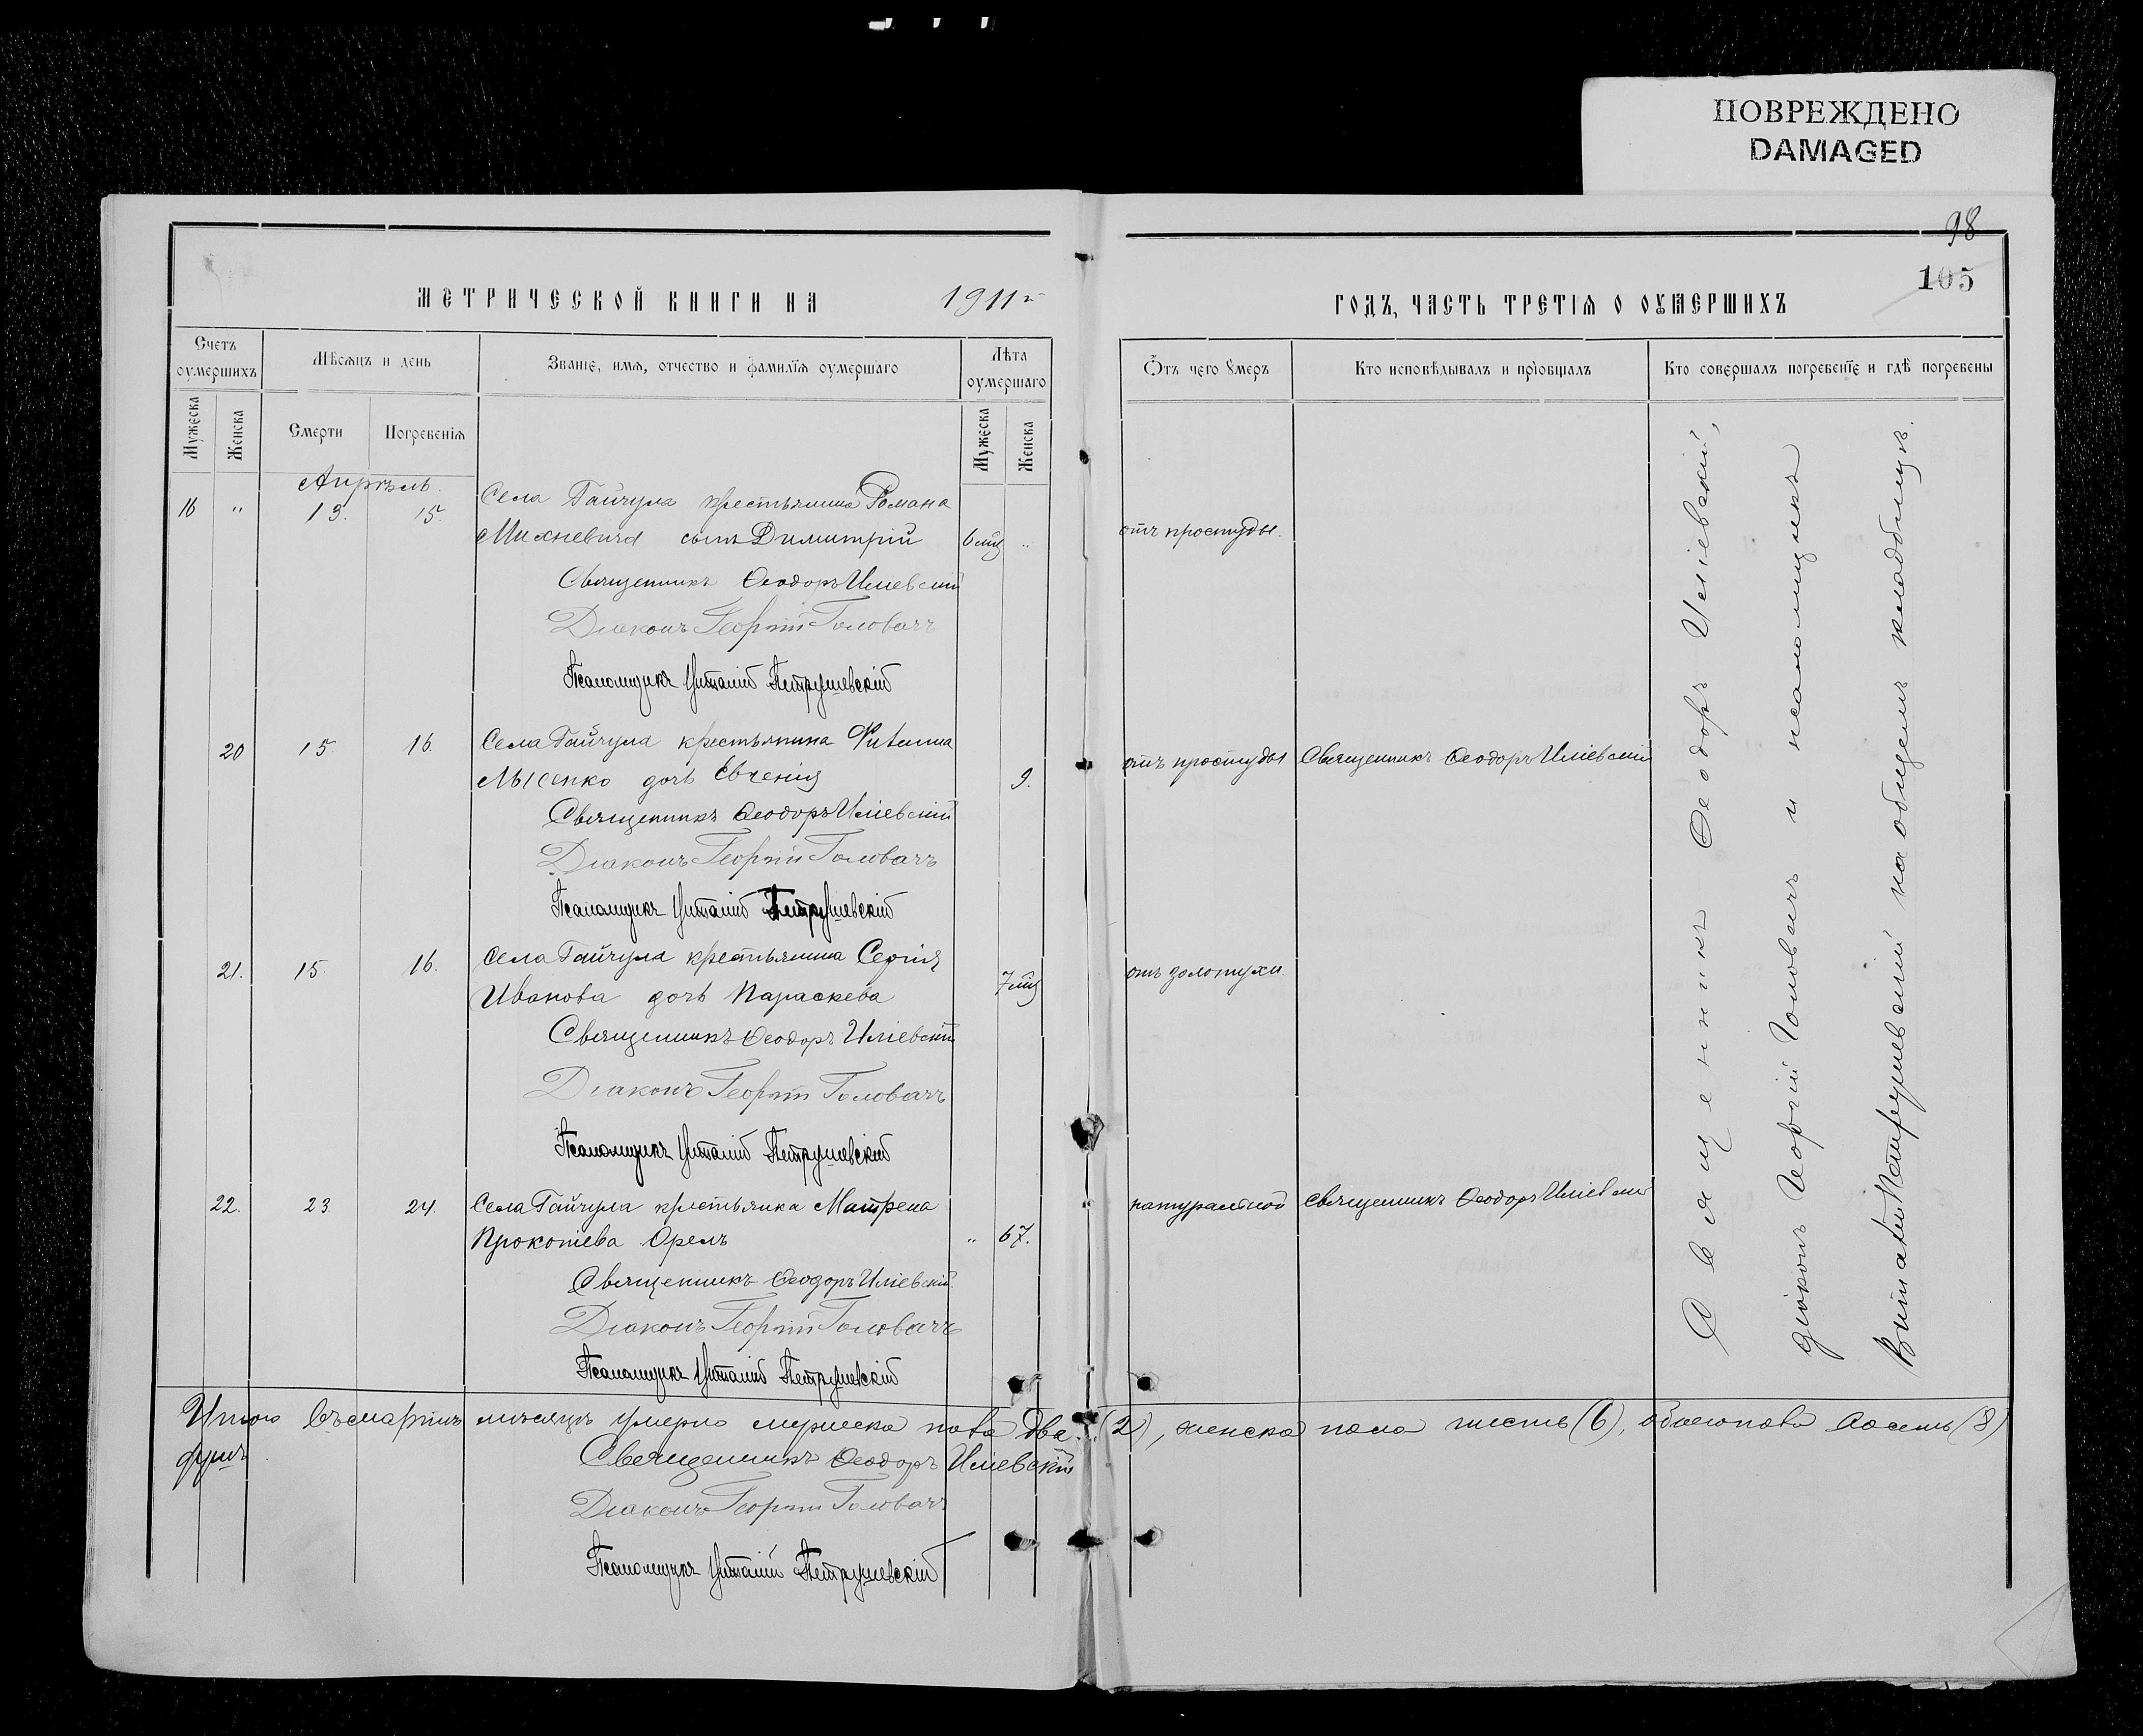 ПОВРЕЖДЕНО
DAMAGED
98
105
МЕТРИЧЕСКОЙ КНИГИ НА 1911 г.
ГОДЪ, ЧАСТЬ ТРЕТІЯ О ОУМЕРШИХЪ
Счетъ оумершихъ
Мѣсяцъ и день
Званіе, имя, отчество и фамилія оумершаго
Лѣта оумершаго
Отъ чего умеръ
Кто исповѣдывалъ и пріобщалъ
Кто совершалъ погребеніе и гдѣ погребены
Мужеска
Женска
Смерти
Погребенія
Мужеска
Женска
Апрѣль
16 " 13. 15. Села Гайчула крестьянина Романа
Михневича сынъ Димитрій 6 мѣс " отъ простуды.
Священникъ Ѳеодоръ Иліевскій
Діаконъ Георгій Головачъ
Псаломщикъ Виталій Петрушевскій
20 15 16. Села Гайчула крестьянина
Лысенко дочь Евгенія 9. отъ простуды Священникъ Ѳеодоръ Иліевскій
Священникъ Ѳеодоръ Иліевскій
Діаконъ Георгій Головачъ
Псаломщикъ Виталій Петрушевскій
21. 15. 16. Села Гайчула крестьянина Сергія
Иванова дочь Параскева 7 мѣс отъ золотухи.
Священникъ Ѳеодоръ Иліевскій
Діаконъ Георгій Головачъ
Псаломщикъ Виталій Петрушевскій
22. 23 24. Села Гайчула крестьянка Матрена
Прокопіева Орелъ " 67. натуральной Священникъ Ѳеодоръ Иліевскій
Священникъ Ѳеодоръ Иліевскій.
Діаконъ Георгій Головачъ
Псаломщикъ Виталій Петрушевскій
Священникъ Ѳеодоръ Иліевскій,
діаконъ Георгій Головачъ и псаломщикъ
Виталій Петрушевскій на общемъ кладбищѣ.
Итого въ мартѣ мѣсяцѣ умерло мужеска пола два (2), женска пола шесть (6), обоего пола восемь (8)
душъ.
Священникъ Ѳеодоръ Иліевскій
Діаконъ Георгій Головачъ
Псаломщикъ Виталій Петрушевскій